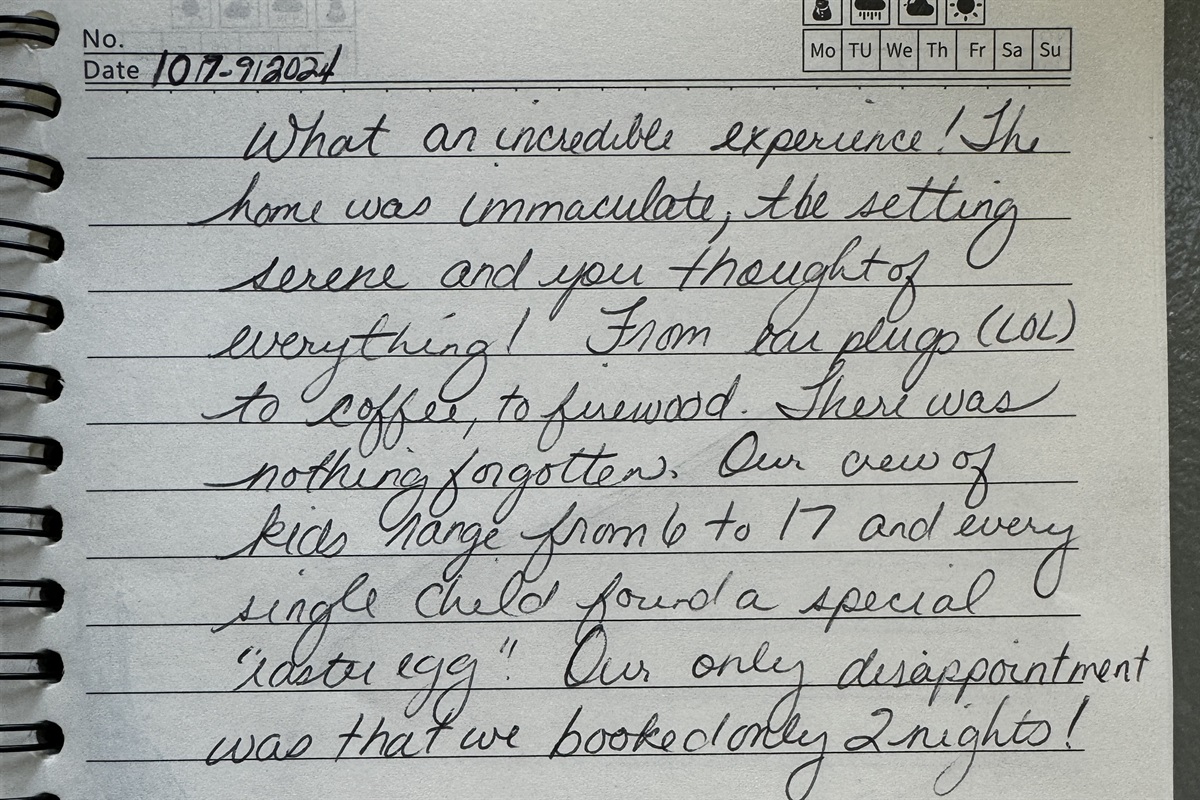 No.
Date 10/7-9/2024
Mo TU We Th Fr Sa Su
What an incredible experience! The
home was immaculate, the setting
serene and you thought of
everything! From ear plugs (LOL)
to coffee, to firewood. There was
nothing forgotten. Our crew of
kids range from 6 to 17 and every
single child found a special
"easter egg". Our only disappointment
was that we booked only 2 nights!